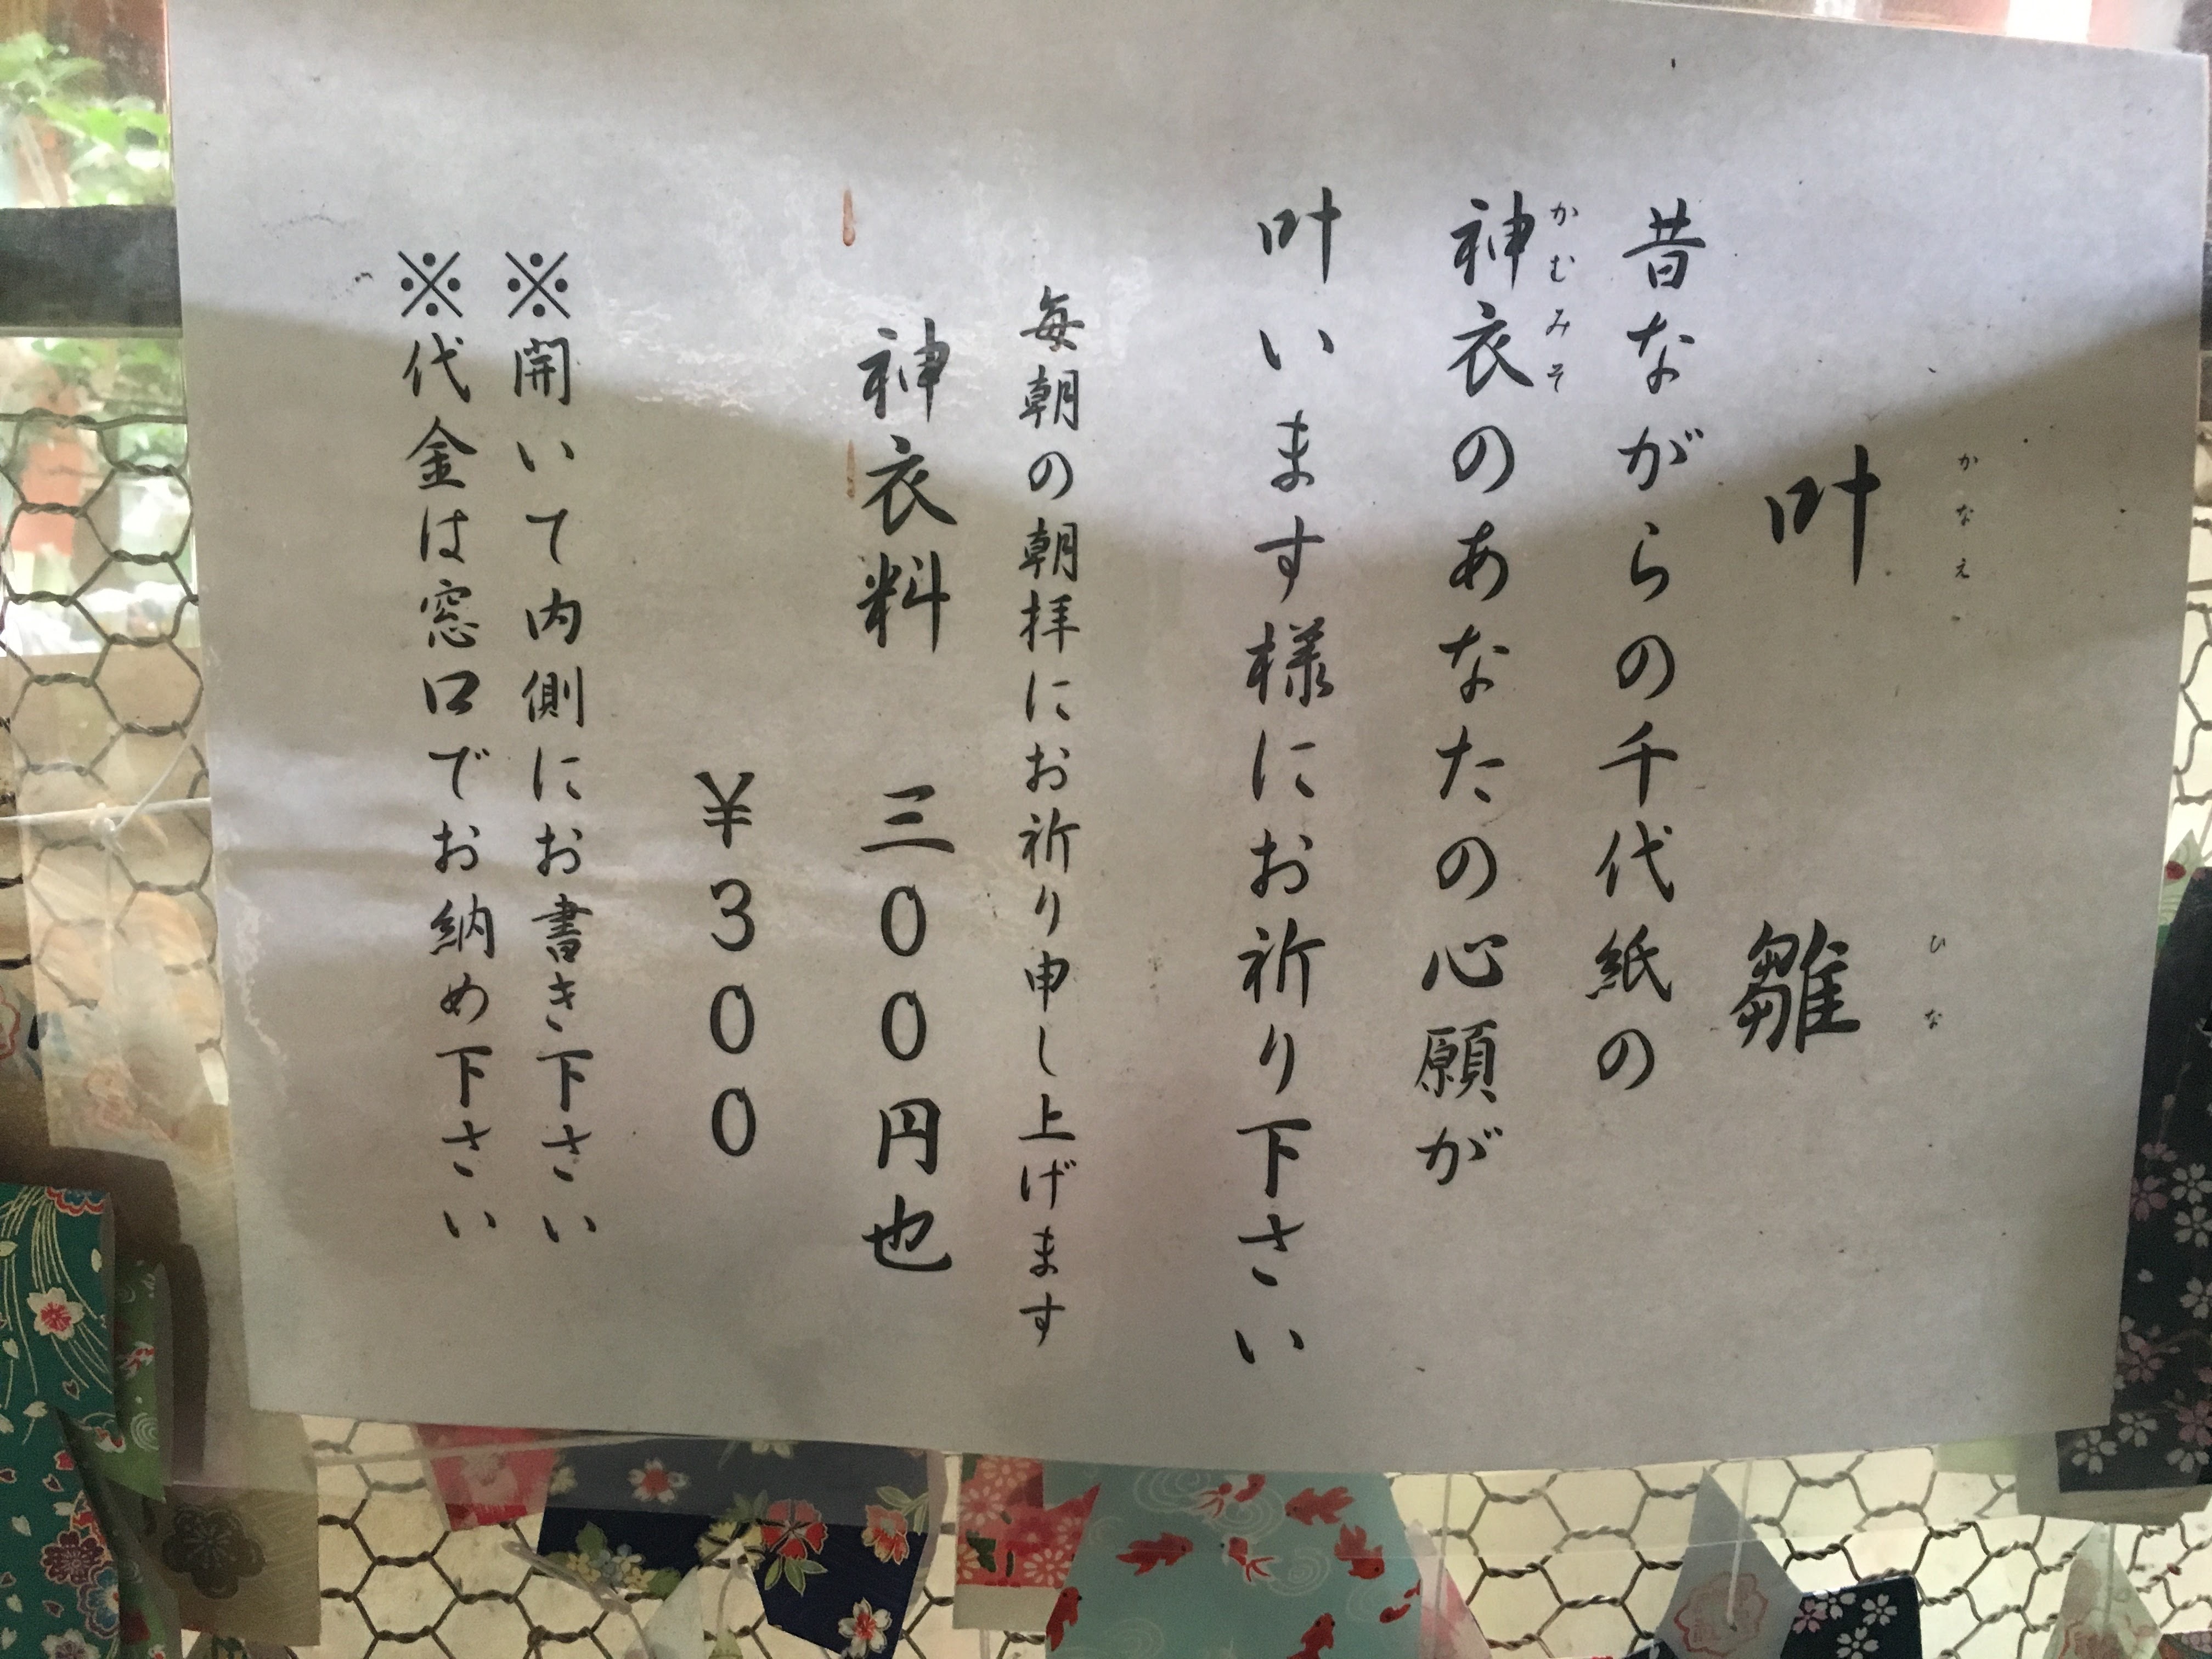 かなえ　ひな
叶　雛
昔ながらの千代紙の
かむみそ
神衣のあなたの心願が
叶います様にお祈り下さい
毎朝の朝拝にお祈り申し上げます
神衣料　三００円也
￥３００
※開いて内側にお書き下さい
※代金は窓口でお納め下さい